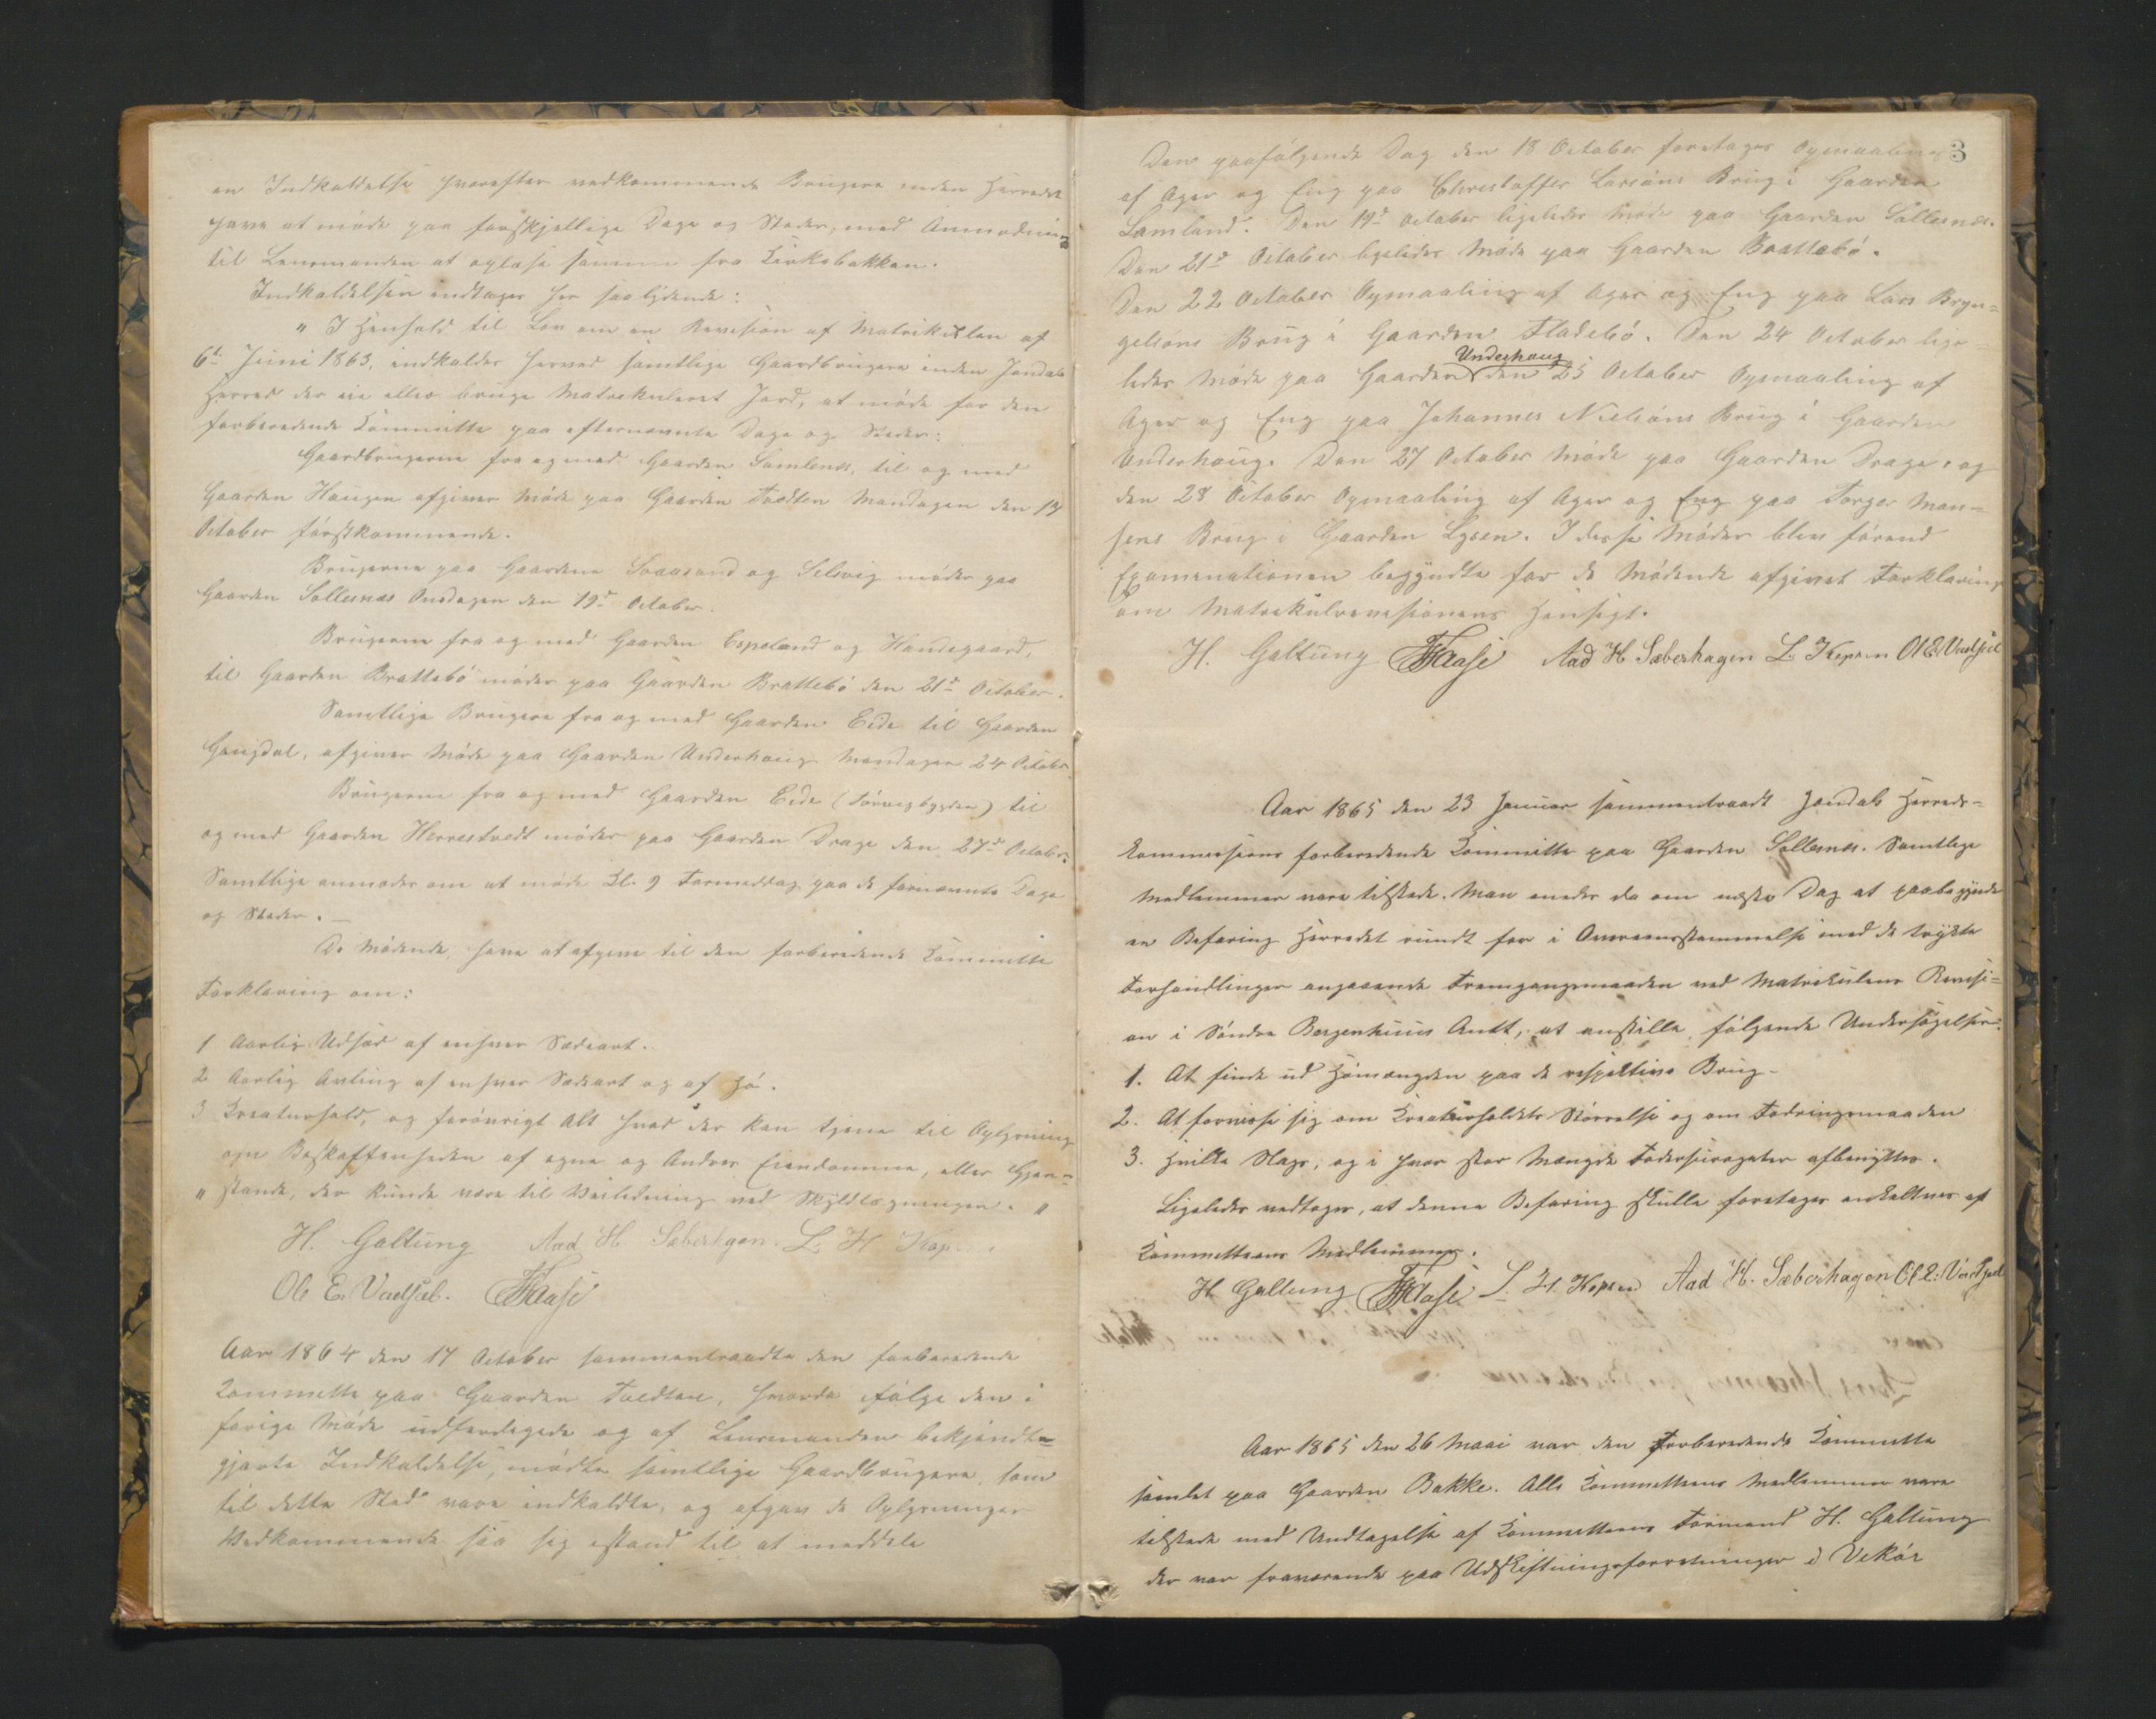 en Indkaldelse hvorefter vedkommende Brugere inden Herredet
have at møde paa forskjellige Dage og Steder, med Anmodning
til Lensmanden at oplæse samme fra Kirkebakken.
Indkaldelsen indtages her saalydende:
" I Henhold til Lov om en Revision af Matrikulen af
6te Juni 1863, indkaldes herved samtlige Gaardbrugere inden Jondals
Herred der eie eller bruge Matrikuleret Jord, at møde for den
forberedende Committe paa efternævnte Dage og Steder:
Gaardbrugerne fra og med Gaarden Samlenes, til og med
Gaarden Haugen afgiver Møde paa Gaarden Tvedten Mandagen den 17
October førstkommende.
Brugerne paa Gaardene Svaasand og Selsvig møder paa
Gaarden Sollesnæs Onsdagen den 19de October.
Brugerne fra og med Gaarden Espeland og Handegaard,
til Gaarden Brattebø møder paa Gaarden Brattebø den 21de October.
Samtlige Brugere fra og med Gaarden Eide til Gaarden
Gaugdal, afgiver Møde paa Gaarden Underhaug Mandagen 24 October
Brugerne fra og med Gaarden Eide (Tørvigbygden) til
og med Gaarden Herrestvedt møder paa Gaarden Drage den 27de October.
Samtlige anmodes om at møde Kl. 9 Formiddag paa de fornævnte Dage
og Steder. —
De Mødende have at afgive til den forberedende Committe
Forklaring om:
1 Aarlig Udsæd af enhver Sædeart.
2 Aarlig Avling af enhver Sædeart og af Hø.
3 Kreaturhold, og forøvrigt Alt hvad der kan tjene til Oplysning
om Beskaffenheden af egne og Andres Eiendomme, eller Gjen=
" stande, der kunde være til Veiledning ved Skyldlægningen. "
H. Galtung Aad H. Sæberhagen. L. H. Kopren
Ole E. Vadsel. T Haase
Aar 1864 den 17 October sammentraadte den forberedende
Committe paa Gaarden Tvedten, hvorda ifølge den i
forige Møde udfærdigede og af Lensmanden bekjendt=
gjorte Indkaldelse, mødte samtlige Gaardbrugere, som
til dette Sted vare indkaldte, og afgav de Oplysninger
Vedkommende saa sig istand til at meddele
3
Den paafølgende Dag den 18 October foretages Opmaaling
af Ager og Eng paa Christoffer Larsens Brug i Gaarden
Samland. Den 19de October ligeledes Møde paa Gaarden Sollesnæs.
Den 21de October ligeledes Møde paa Gaarden Brattebø.
Den 22 October Opmaaling af Ager og Eng paa Lars Bryn=
gelsons Brug i Gaarden Fladebø. Den 24 October lige=
Underhaug
ledes Møde paa Gaarden den 25 October Opmaaling af
Ager og Eng paa Johannes Nielsøns Brug i Gaarden
Underhaug. Den 27 October Møde paa Gaarden Drage, og
den 28 October Opmaaling af Ager og Eng paa Torger Mon=
sens Brug i Gaarden Lysen. I disse Møder blev førend
Examinationen begyndte for de Mødende afgivet Forklaring
om Matrikulrevisionens Hensigt.
H. Galtung T Haase Aad H Sæberhagen L. Kopren Ol E. Vadsel
Aar 1865 den 23 Januar sammentraadt Jondals Herreds=
kommissions forberedende Committe paa Gaarden Sollesnæs. Samtlige
Medlemmer vare tilstede. Man enedes da om næste Dag at paabegynde
en Befaring Herredet rundt for i Overensstemmelse med de trykte
Forhandlinger angaaende Fremgangsmaaden ved Matrikulens Revisi=
on i Søndre Bergenhuus Amt, at anstille følgende Undersøgelser:
1. At finde ud Hømængden paa de respektive Brug.
2. At forvisse sig om Kreaturholdets Størrelse og om Fodringsmaaden
3. Hvilke Slags, og i hvor stor Mængde Fodersurogater afbenyttes.
Ligeledes vedtoges, at denne Befaring skulle foretages enkeltvis af
Committeens Medlemmer.
H Galtung T Haase L. H. Kopren Aad H. Sæberhagen Ol E. Vadsel
Aar 1865 den 26 Maai var den forberedende Committe
samlet paa Gaarden Bakke. Alle Committeens Medlemmer vare
tilstede med Undtagelse af Committeens Formand H. Galtung
der var fraværende paa Udskiftningsforretninger i Vikør